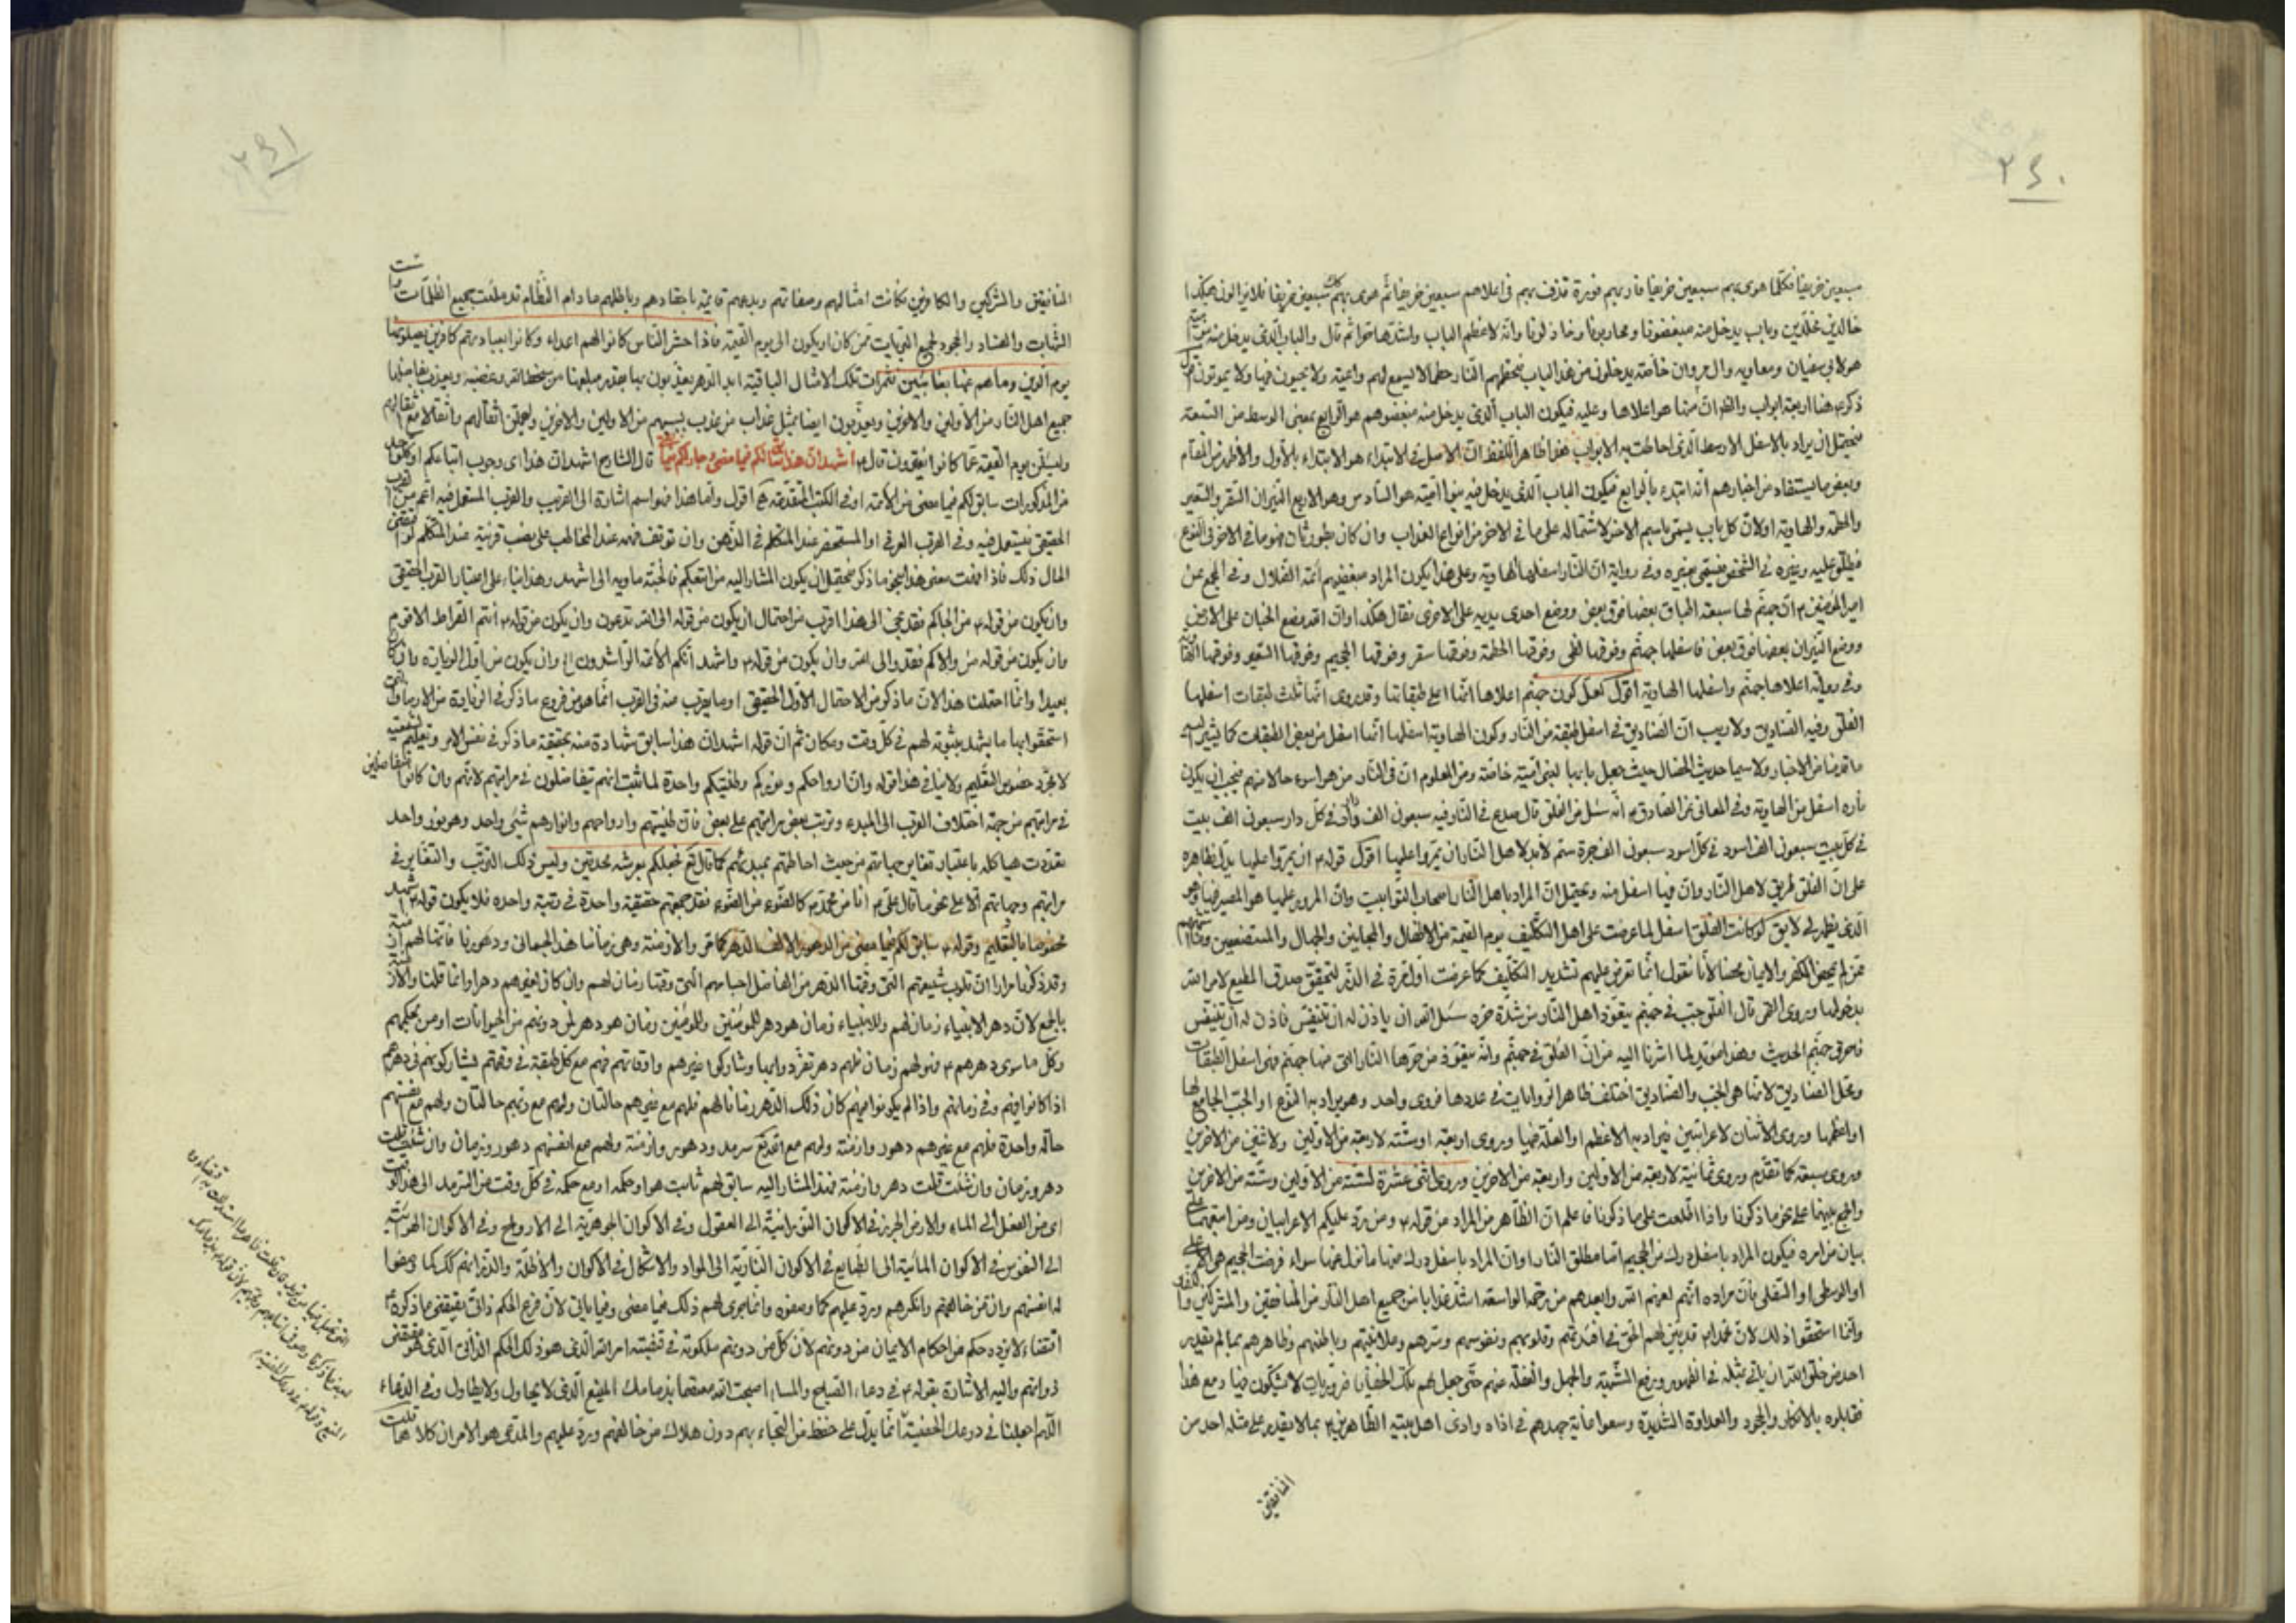 ٢٤٠
سبعين خريفا فكلما هوى بهم سبعين خريفا فار بهم فورة قذف بهم في اعلاهم سبعين خريفا ثم هوى بهم كك سبعين خريفا فلا يزالون هكذا
خالدين مخلدين وباب يدخل منه مبغضونا ومحاربونا وخاذلونا وانه لاعظم الباب واشدها حرا ثم قال والباب الذي يدخل منه بنو امية
هو لابي سفيان ومعاوية وال مروان خاصة يدخلون من هذا الباب فتحطمهم النار حطما لا يسمع لهم واعية ولا يحيون فيها ولا يموتون
ذكره هنا اربعة ابواب والظ ان منها هو اعلاها وعليه فيكون الباب الذي يدخل منه مبغضوهم هو الرابع بمعنى الوسط من السبعة
فيحتمل ان يراد بالاسفل الاوسط الذي احاطت به الابواب هذا ظاهر اللفظ لان الاصل في الابتداء هو الابتداء بالاول والاظهر من المقام
وبعض ما يستفاد من اخبارهم انه ابتدء بالرابع فيكون الباب الذي يدخل فيه بنوا امية هو السادس وهو الاربع النيران السقر والسعير
والحطمة والهاوية اولان كل باب يسمى باسم الاخر لاشتماله على ما في الاخر من انواع العذاب وان كان بطور ثان فهو ما في الاخر في النوع
فيطلق عليه وغيره في الشخص فيبقى بغيره وفي رواية ان للنار اسفلها الهاوية وعلى هذا يكون المراد مبغضيهم ائمة الضلال وفي المجمع عن
امير المؤمنين ع ان جهنم لها سبعة اطباق بعضها فوق بعض ووضع احدى يديه على الاخرى فقال هكذا وان الله وضع الجنان على الارض
ووضع النيران بعضها فوق بعض فاسفلها جهنم وفوقها لظى وفوقها الحطمة وفوقها سقر وفوقها الجحيم وفوقها السعير وفوقها الهاوية
وفي رواية اعلاها جهنم واسفلها الهاوية اقول لعل كون جهنم اعلاها انها اعلى طبقاتها وقد روى انها ثلث طبقات اسفلها
الفلق وفيه الصناديق ولا ريب ان الصناديق في اسفل طبقة من النار وكون الهاوية اسفلها انها اسفل من بعض الطبقات كما يشير اليه
ما قدمنا من الاخبار ولا سيما حديث الخصال حيث جعل بابها لبني امية خاصة ومن المعلوم ان في النار من هو اسوء حالا منهم فيجب ان يكون
ناره اسفل من الهاوية وفي المعاني عن الصادق ع انه سئل عن الفلق قال صدع في النار فيه سبعون الف دار في كل دار سبعون الف بيت
في كل بيت سبعون الف اسود في كل اسود سبعون الف جرة سم لابد لاهل النار ان يمروا عليها اقول قوله ع ان يمروا عليها يدل بظاهره
على ان الفلق طريق لاهل النار وان فيها اسفل منه ويحتمل ان المراد باهل النار اصحاب التوابيت وان المرور عليها هو المصير فيها وهو
الذي يظهر لي لايق لو كانت الفلق اسفل لما عرضت على اهل التكليف يوم القيمة من الاطفال والمجانين والجهال والمستضعفين
ممن لم يمحض الكفر والايمان محضا لانا نقول انما تعرض عليهم تشديد التكليف كما عرضت اول مرة في الذر ليتحقق صدق المطيع لامر الله
بدخولها وروى القمي قال الفلق جب في جهنم يتعوذ اهل النار من شدة حره سئل الله ان ياذن له ان يتنفس فاذن له ان يتنفس
فاحرق جهنم الحديث وهذا مؤيد لما اشرنا اليه من ان الفلق في جهنم وانه يتعوذ من حرها النار التي منها جهنم فهو اسفل الطبقات
ومحل الصناديق لانها هي الجب والصناديق اختلف ظاهر الروايات في عددها فروى واحد وهو يراد به النوع او الجب الجامع لها
او اعظمها وروى الاثنان لاعرابيين فيراد به الاعظم او العلة فيها وروى اربعة او ستة لاربعة من الاولين ولاثنين من الاخرين
وروى سبعة كما تقدم وروى ثمانية لاربعة من الاولين واربعة من الاخرين وروى اثنى عشرة لستة من الاولين وستة من الاخرين
والجمع بينهما على نحو ما ذكرنا واذا اطلعت على ما ذكرنا فاعلم ان الظاهر من المراد من قوله ع ومن رد عليكم الاعرابيان ومن اتبعهما على
بيان مراده فيكون المراد باسفل درك من الجحيم اما مطلق النار او ان المراد باسفل درك منها ما نزل عنها سواء فرضت الجحيم هي الاعلى
او الوسطى او السفلى بان مراده انهم لعنهم الله وابعدهم من رحمته الواسعة اشد عذابا من جميع اهل النار من المنافقين والمشركين والكفار
وانما استحقوا ذلك لان محمدا ص قد بين لهم الحق في افئدتهم وقلوبهم ونفوسهم وسرهم وعلانيتهم وباطنهم وظاهرهم بما لم يقدر
احد من خلق الله ان ياتي بمثله في الظهور ورفع الشبهة والجهل والغفلة عنهم حتى جعل لهم تلك الخفايا ضروريات لا يشكون فيها ومع هذا
فقابلوه بالانكار والجحود والعداوة الشديدة وسعوا غاية جهدهم في اذاه واذى اهل بيته الطاهرين بما لا يقدر على مثله احد من
المنافقين
٢٤١
المنافقين والمشركين والكافرين فكانت امثالهم وصفاتهم وبدعهم قائمة باحقادهم وباطلهم ما دام النظام قد ملئت جميع الظلمات
الثابت والعناد والجحود لجميع البريات ممن كان او يكون الى يوم القيمة فاذا حشر الناس كانوا لهم اعداء وكانوا بعبادتهم كافرين يصلونها
يوم الدين وما هم عنها بغائبين بثمرات تلك الامثال الباقية ابد الدهر يعذبون بها بقدر مبلغها من سخط الله وغضبه ويعذب بفاضلها
جميع اهل النار من الاولين والاخرين ويعذبون ايضا بمثل عذاب من عذب بسببهم من الاولين والاخرين وليحملن اثقالهم واثقالا مع اثقالهم
وليسئلن يوم القيمة عما كانوا يفترون قال ع اشهد ان هذا سابق لكم فيما مضى وجار لكم فيما بقى قال الشارح اشهد ان هذا اى وجوب اتباعكم او كل واحد
من المذكورات سابق لكم فيما مضى من الائمة او في الكتب المتقدمة اقول واما هذا فهو اسم اشارة الى القريب والقرب المستعمل فيه اعم من القرب
الحقيقي فيستعمل فيه وفي القرب العرفي او المستحضر عند المتكلم في الذهن وان توقف فهمه عند المخاطب على نصب قرينة عند المتكلم
الحال ذلك فاذا عرفت معنى هذا بنحو ما ذكر فيحتمل ان يكون المشار اليه من اتبعكم فالجنة ماويه الى اشهد وهذا بناء على اعتبار القرب الحقيقي
وان يكون من قوله ع من اتاكم فقد نجى الى هذا اقرب من احتمال ان يكون من قوله الى الله تدعون وان يكون من قوله ع انتم الصراط الاقوم
وان يكون من قوله من والاكم فقد والى الله وان يكون من قوله ع واشهد انكم الائمة الراشدون الخ وان يكون من اول الزيارة وان كان
بعيدا وانما احتملنا هذا لان ما ذكر من الاحتمال الاول الحقيقي او ما يقرب منه في القرب انما هو من فروع ما ذكر في الزيارة من الاوصاف التي
استحقوا بها ما يشهد بثبوته لهم في كل وقت ومكان ثم ان قوله اشهد ان هذا سابق شهادة منه بحقيقة ما ذكر في نفس الامر وتعليم لشيعته
لا مجرد خصوص التعليم ولا ينافي هذا قوله وان ارواحكم ونوركم وطينتكم واحدة لما ثبت انهم يتفاضلون في مراتبهم لانهم وان كانوا متفاضلين
في مراتبهم من جهة اختلاف القرب الى المبدء وترتب بعض مراتبهم على بعض فان طينتهم وارواحهم وانوارهم شيء واحد وهو نور واحد
تعددت هياكله باعتبار تغاير جهاتهم من حيث احاطتهم بمبدئهم كما قال ع فجعلكم بعرشه محدقين وليس ذلك الترتب والتغاير في
مراتبهم وجهاتهم الا على نحو ما قال علي ع انا من محمد ص كالضوء من الضوء فقد جمعتهم حقيقة واحدة في رتبة واحدة فلا يكون قوله ع اشهد
مخصوصا بالتعليم وقوله ع سابق لكم فيما مضى من الدهور لا الف الدهر كما مر والازمنة وهي زماننا هذا الجسماني ودهورنا فانها لهم ازمنة
وقد ذكرنا مرارا ان قلوب شيعتهم التي وقتها الدهر من الفاضل اجسامهم التي وقتها زمان لهم وان كان لغيرهم دهرا وانما قلنا والازمنة
بالجمع لان دهر الانبياء زمان لهم وللانبياء زمان هو دهر للمؤمنين وللمؤمنين زمان هو دهر لمن دونهم من الحيوانات او من بحكمهم
وكل ما سوى دهرهم ع فهو لهم زمان فلهم دهر تفرد وابها وشاركوا غيرهم واوقاتهم فهم مع كل طبقة في وقتهم يشاركونهم في دهرهم
اذا كانوا فيهم وفي زمانهم واذا لم يكونوا فيهم كان ذلك الدهر زمانا لهم فلهم مع غيرهم حالتان ولهم مع ربهم حالتان ولهم مع انفسهم
حالة واحدة فلهم مع غيرهم دهور وازمنة ولهم مع الله تع سرمد ودهور وازمنة ولهم مع انفسهم دهور وزمان وان شئت قلت
دهر وزمان وان شئت قلت دهر وازمنة فهذا المشار اليه سابق لهم ثابت هو او حكمه او مع حكمه في كل وقت من السرمد الى هذا الوقت
اى من الفعل الى الماء والارض الجرز في الاكوان النورانية الى العقول وفي الاكوان الجوهرية الى الارواح وفي الاكوان الهوائية
الى النفوس في الاكوان المائية الى الطبايع في الاكوان النارية الى المواد والاشكال في الاكوان والاظلة والذر انهم كك كما وصفوا
انفسهم وان من خالفهم وانكرهم ورد عليهم كما وصفوه وانما يجرى لهم ذلك فيما مضى وفيما ياتي لان فرع الحكم ذاتي يقتضى ما ذكروه ع
اقتضاء لا يرده حكم من احكام الايمان من دونهم لان كل من دونهم ملكوته في قبضته امر الله الذي هو ذلك الحكم الذاتي الذي هو مقتضى
ذواتهم واليه الاشارة بقوله ع في دعاء الصباح والمساء اصبحت الله معتصما بذمامك المنيع الذي لا يحاول ولا يطاول وفي الدعاء
اللهم اجعلنا في درعك الحصينة انما يدل على حفظ من التجاء بهم دون هلاك من خالفهم ورد عليهم والمدعى هو الامران كلاهما قلت